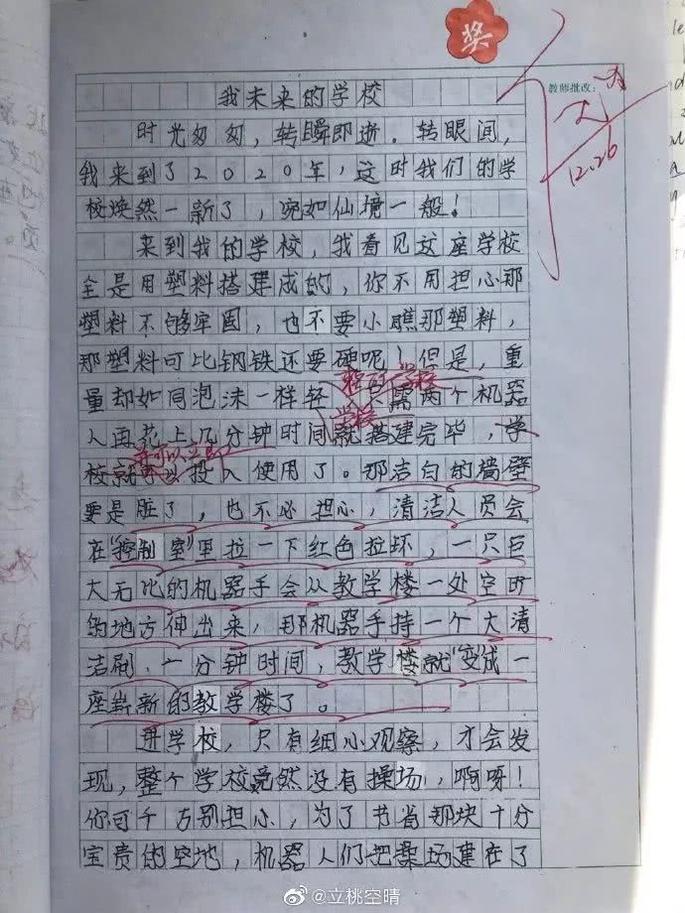 奖
教师批改:
12.26
我未来的学校
时光匆匆，转瞬即逝。转眼间，
我来到了2020年，这时我们的学
校焕然一新了，宛如仙境一般！
来到我的学校，我看见这座学校
全是用塑料搭建成的，你不用担心那
塑料不够牢固，也不要小瞧那塑料，
那塑料可比钢铁还要硬呢！但是，重
量却如同泡沫一样轻，只需两个机器
学校
人再花上几分钟时间就搭建完毕，学
并可以立即
校就可以投入使用了。那洁白的墙壁
要是脏了，也不必担心，清洁人员会
在“控制室”里拉一下红色拉环，一只巨
大无比的机器手会从教学楼一处空旷
的地方伸出来，那机器手持一个大清
洁刷，一分钟时间，教学楼就“变”成一
座崭新的教学楼了。
进学校，只有细心观察，才会发
现，整个学校竟然没有操场，啊呀！
你可千万别担心，为了节省那块十分
宝贵的空地，机器人们把操场建在了
@立桃空晴